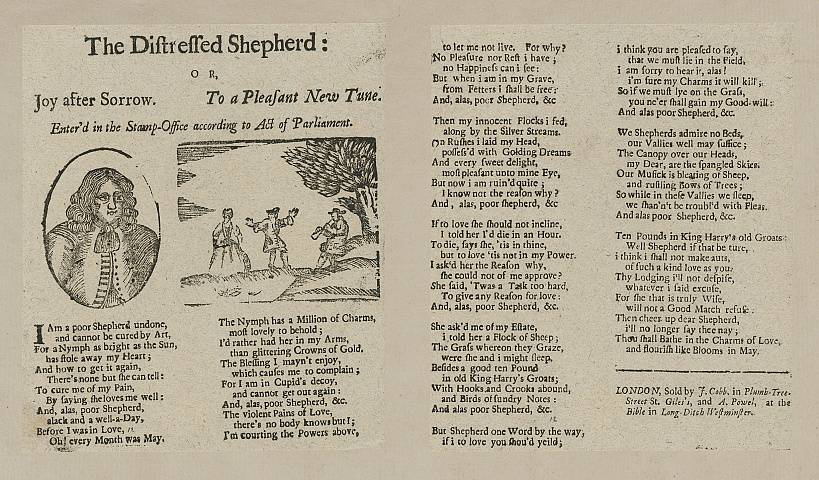 The Diſtreſſed Shepherd:
OR,
Joy after Sorrow. To a Pleaſant New Tune.
Enter'd in the Stamp-Office according to Act of Parliament.
I Am a poor Shepherd undone,
and cannot be cured by Art,
For a Nymph as bright as the Sun,
has ſtole away my Heart;
And how to get it again,
There's none but ſhe can tell:
To cure me of my Pain,
By ſaying ſhe loves me well:
And, alas, poor Shepherd,
alack and a well-a-Day,
Before I was in Love,
Oh! every Month was May.
The Nymph has a Million of Charms,
moſt lovely to behold;
I'd rather had her in my Arms,
than glittering Crowns of Gold.
The Bleſſing I mayn't enjoy,
which cauſes me to complain;
For I am in Cupid's decoy,
and cannot get out again:
And, alas, poor Shepherd, &c.
The violent Pains of Love,
there's no body knows but I;
I'm courting the Powers above,
to let me not live. For why?
No Pleaſure nor Reſt i have;
no Happineſs can i ſee:
But when i am in my Grave,
from Fetters i ſhall be free:
And, alas, poor Shepherd, &c
Then my innocent Flocks i fed,
along by the Silver Streams.
On Ruſhes i laid my Head,
poſſeſs'd with Golding Dreams
And every ſweet delight,
moſt pleaſant unto mine Eye,
But now i am ruin'd quite;
I know not the reaſon why?
And, alas, poor ſhepherd, &c
If to love ſhe ſhould not incline,
I told her I'd die in an Hour.
To die, ſays ſhe, 'tis in thine,
but to love 'tis not in my Power.
I aſk'd her the Reaſon why,
ſhe could not of me approve?
She ſaid, 'Twas a Task too hard,
To give any Reaſon for love:
And, alas, poor Shepherd, &c.
She ask'd me of my Eſtate,
i told her a Flock of Sheep;
The Graſs whereon they Graze,
were ſhe and i might ſleep,
Beſides a good ten Pound
in old King Harry's Groats;
With Hooks and Crooks abound,
and Birds of ſundry Notes:
And alas poor Shepherd, &c.
But Shepherd one Word by the way,
if i to love you ſhou'd yeild;
i think you are pleaſed to ſay,
that we muſt lie in the Field,
i am ſorry to hear it, alas!
i'm ſure my Charms it will kill;
So if we muſt lye on the Graſs,
you ne'er ſhall gain my Good-will:
And alas poor Shepherd, &c.
We Shepherds admire no Beds,
our Vallies well may ſuffice;
The Canopy over our Heads,
my Dear, are the ſpangled Skies.
Our Muſick is bleating of Sheep,
and ruſtling Bows of Trees;
So while in theſe Vallies we ſleep,
we ſhan't be troubl'd with Fleas.
And alas poor Shepherd, &c.
Ten Pounds in King Harry's old Groats:
Well Shepherd if that be ture,
i think i ſhall not make
of ſuch a kind love as you.
Thy Lodging i'll not deſpiſe,
whatever i ſaid excuſe,
For ſhe that is truly Wiſe,
will not a Good Match refuſe:
Then cheer up dear Shepherd,
i'll no longer ſay thee nay;
Thou ſhall Bathe in the Charms of Love,
and flouriſh like Blooms in May.
LONDON, Sold by J. Cobb, in Plumb-Tree-
Street St. Giles's, and A. Powel, at the
Bible in Long-Ditch Weſtminſter.